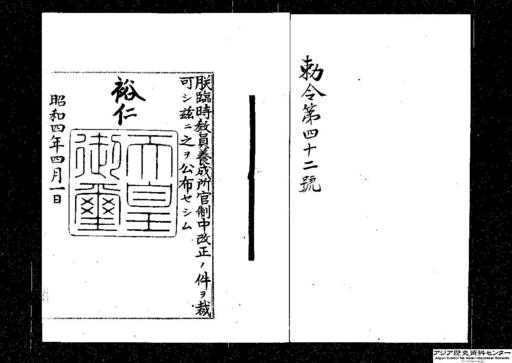 勅令第四十二號
朕臨時教員養成所官制中改正ノ件ヲ裁
可シ茲ニ之ヲ公布セシム
裕仁
天皇
御璽
昭和四年四月一日
アジア歴史資料センター
Japan Center for Asian Historical Records